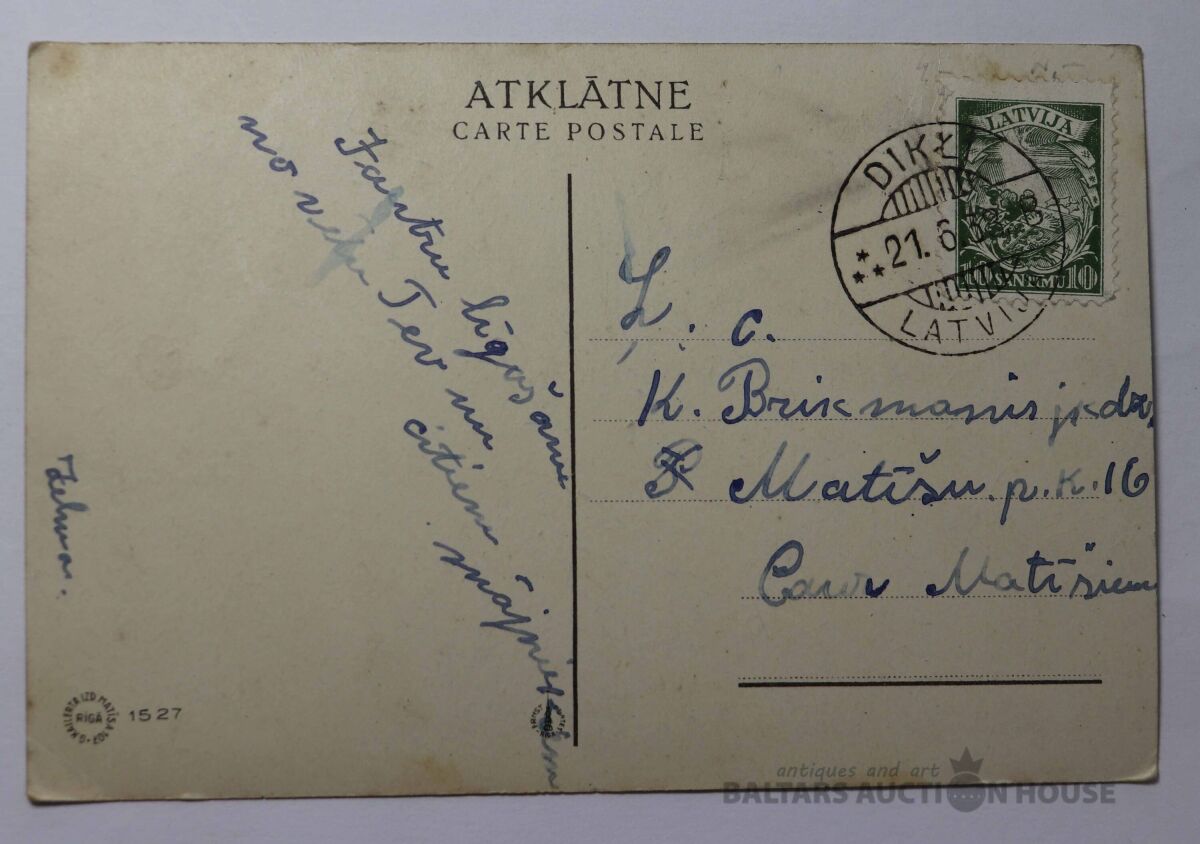 ATKLĀTNE
CARTE POSTALE
Jautru līgošanu
novēlu Tev un
citiem mājniekiem
Zelma.
RĪGA
1527
LATVIJA
10 SANTĪMU 10
DIKĻI
21. 6. 32
LATVIJA
L. c.
K. Brikmanis jkdz,
Matīšu. p. k. 16
Caur Matīšiem
antiques and art
BALTARS AUCTION HOUSE